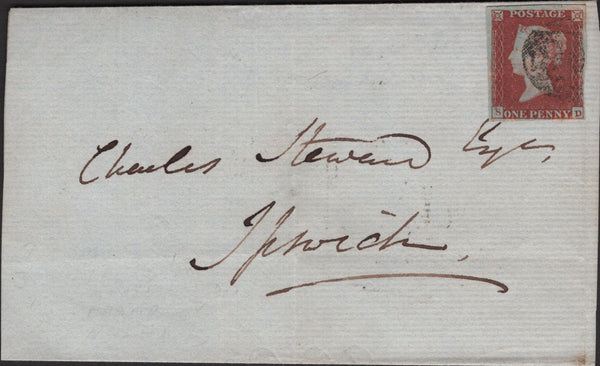 POSTAGE
S ONE PENNY D
Charles Steward Esqre,
Ipswich